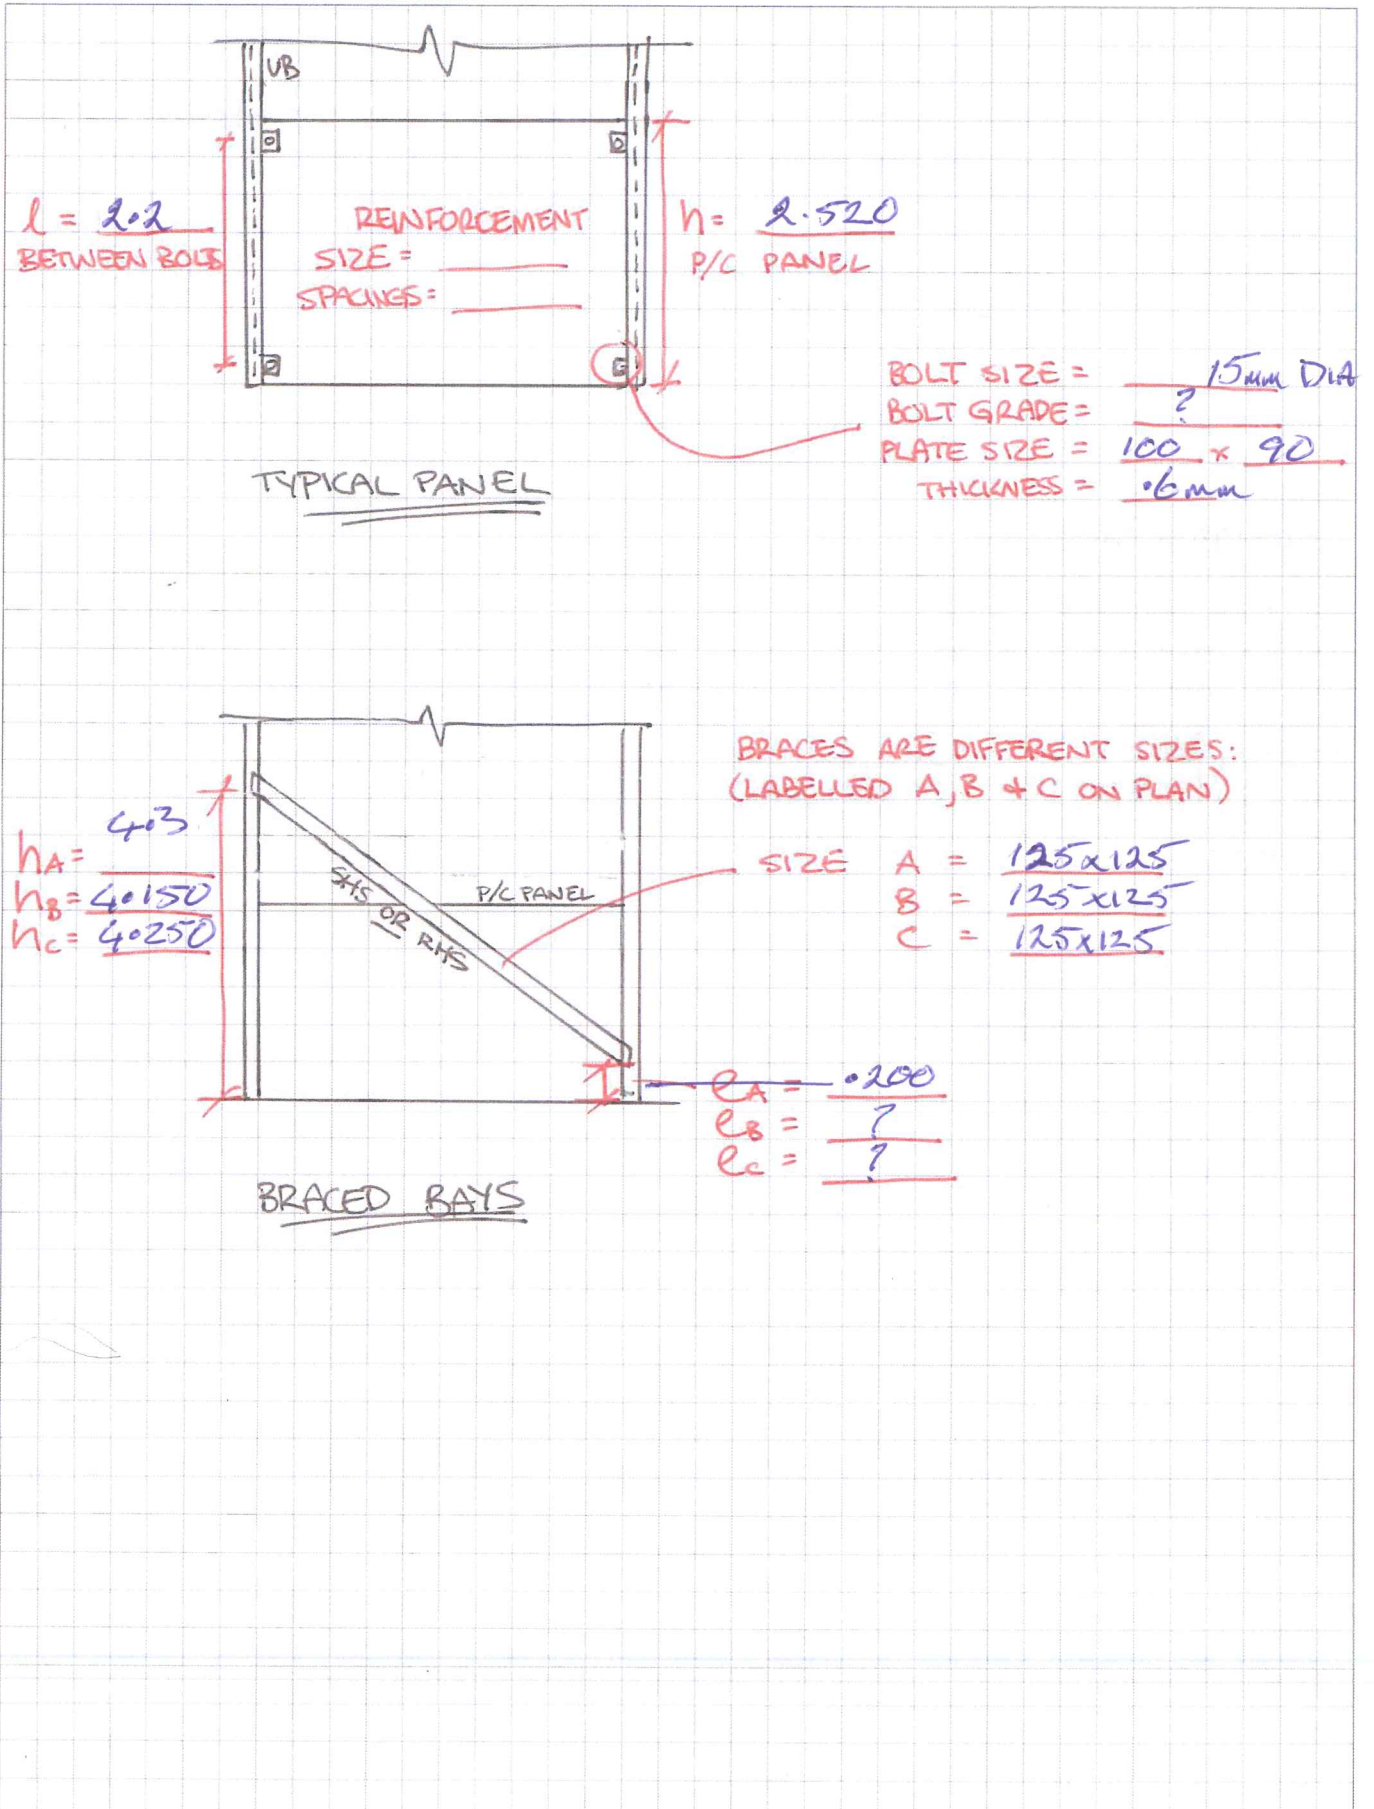 UB
l = 2.2
BETWEEN BOLTS
REINFORCEMENT
SIZE =
SPACINGS =
h = 2.520
P/C PANEL
BOLT SIZE = 15mm DIA
BOLT GRADE = ?
PLATE SIZE = 100 x 90
THICKNESS = .6mm
TYPICAL PANEL
BRACES ARE DIFFERENT SIZES:
(LABELLED A, B & C ON PLAN)
hA = 4.3
hB = 4.150
hC = 4.250
SHS OR RHS
P/C PANEL
SIZE A = 125x125
B = 125x125
C = 125x125
eA = .200
eB = ?
eC = ?
BRACED BAYS